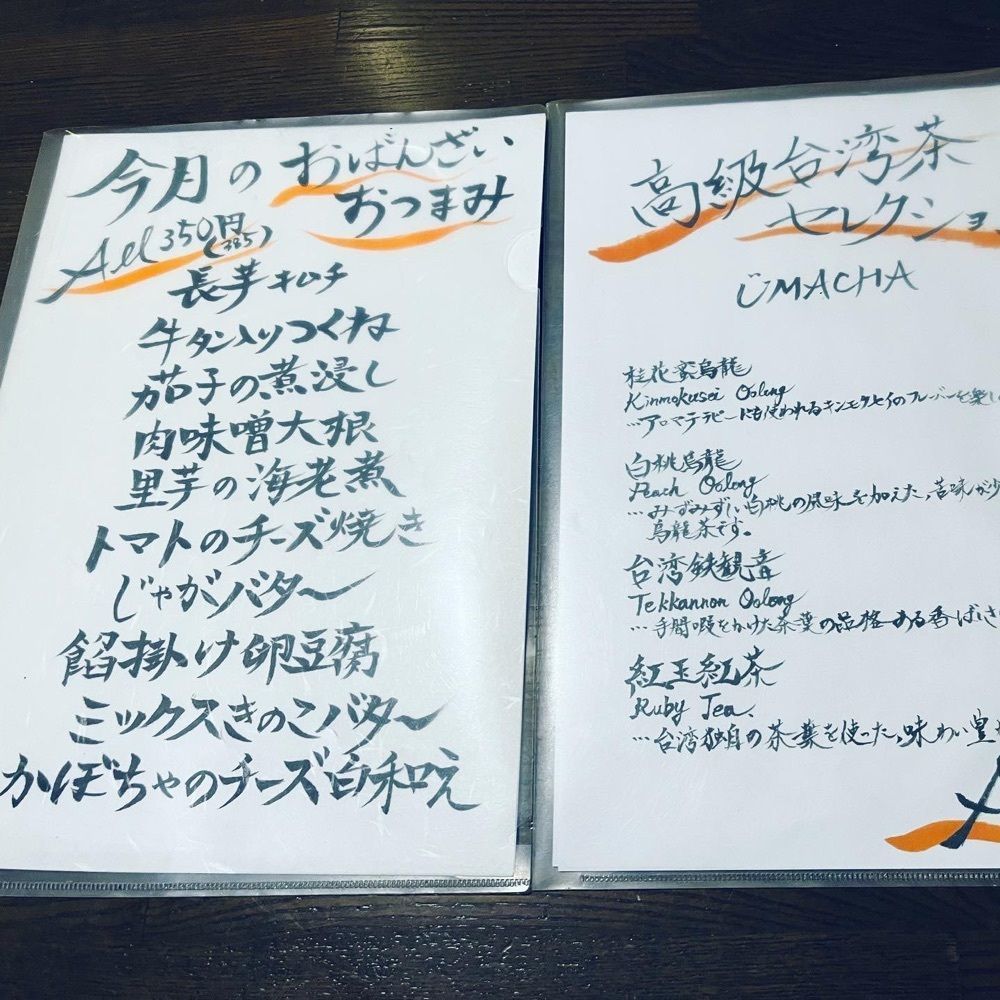 今月の おばんざい
おつまみ
All 350円
(385)
長芋キムチ
牛タン入りつくね
茄子の煮浸し
肉味噌大根
里芋の海老煮
トマトのチーズ焼き
じゃがバター
餡掛け卵豆腐
ミックスきのこバター
かぼちゃのチーズ白和え
高級台湾茶
セレクショ
UMACHA
桂花蜜烏龍
Kinmokusei Oolong
…アロマテラピーにも使われるキンモクセイのフレーバーを楽し
白桃烏龍
Peach Oolong
…みずみずしい白桃の風味を加えた、苦味が少
烏龍茶です。
台湾鉄観音
Tekkannon Oolong
…手間暇をかけた茶葉の品格ある香ばさ
紅玉紅茶
Ruby Tea.
…台湾独自の茶葉を使った、味わい豊